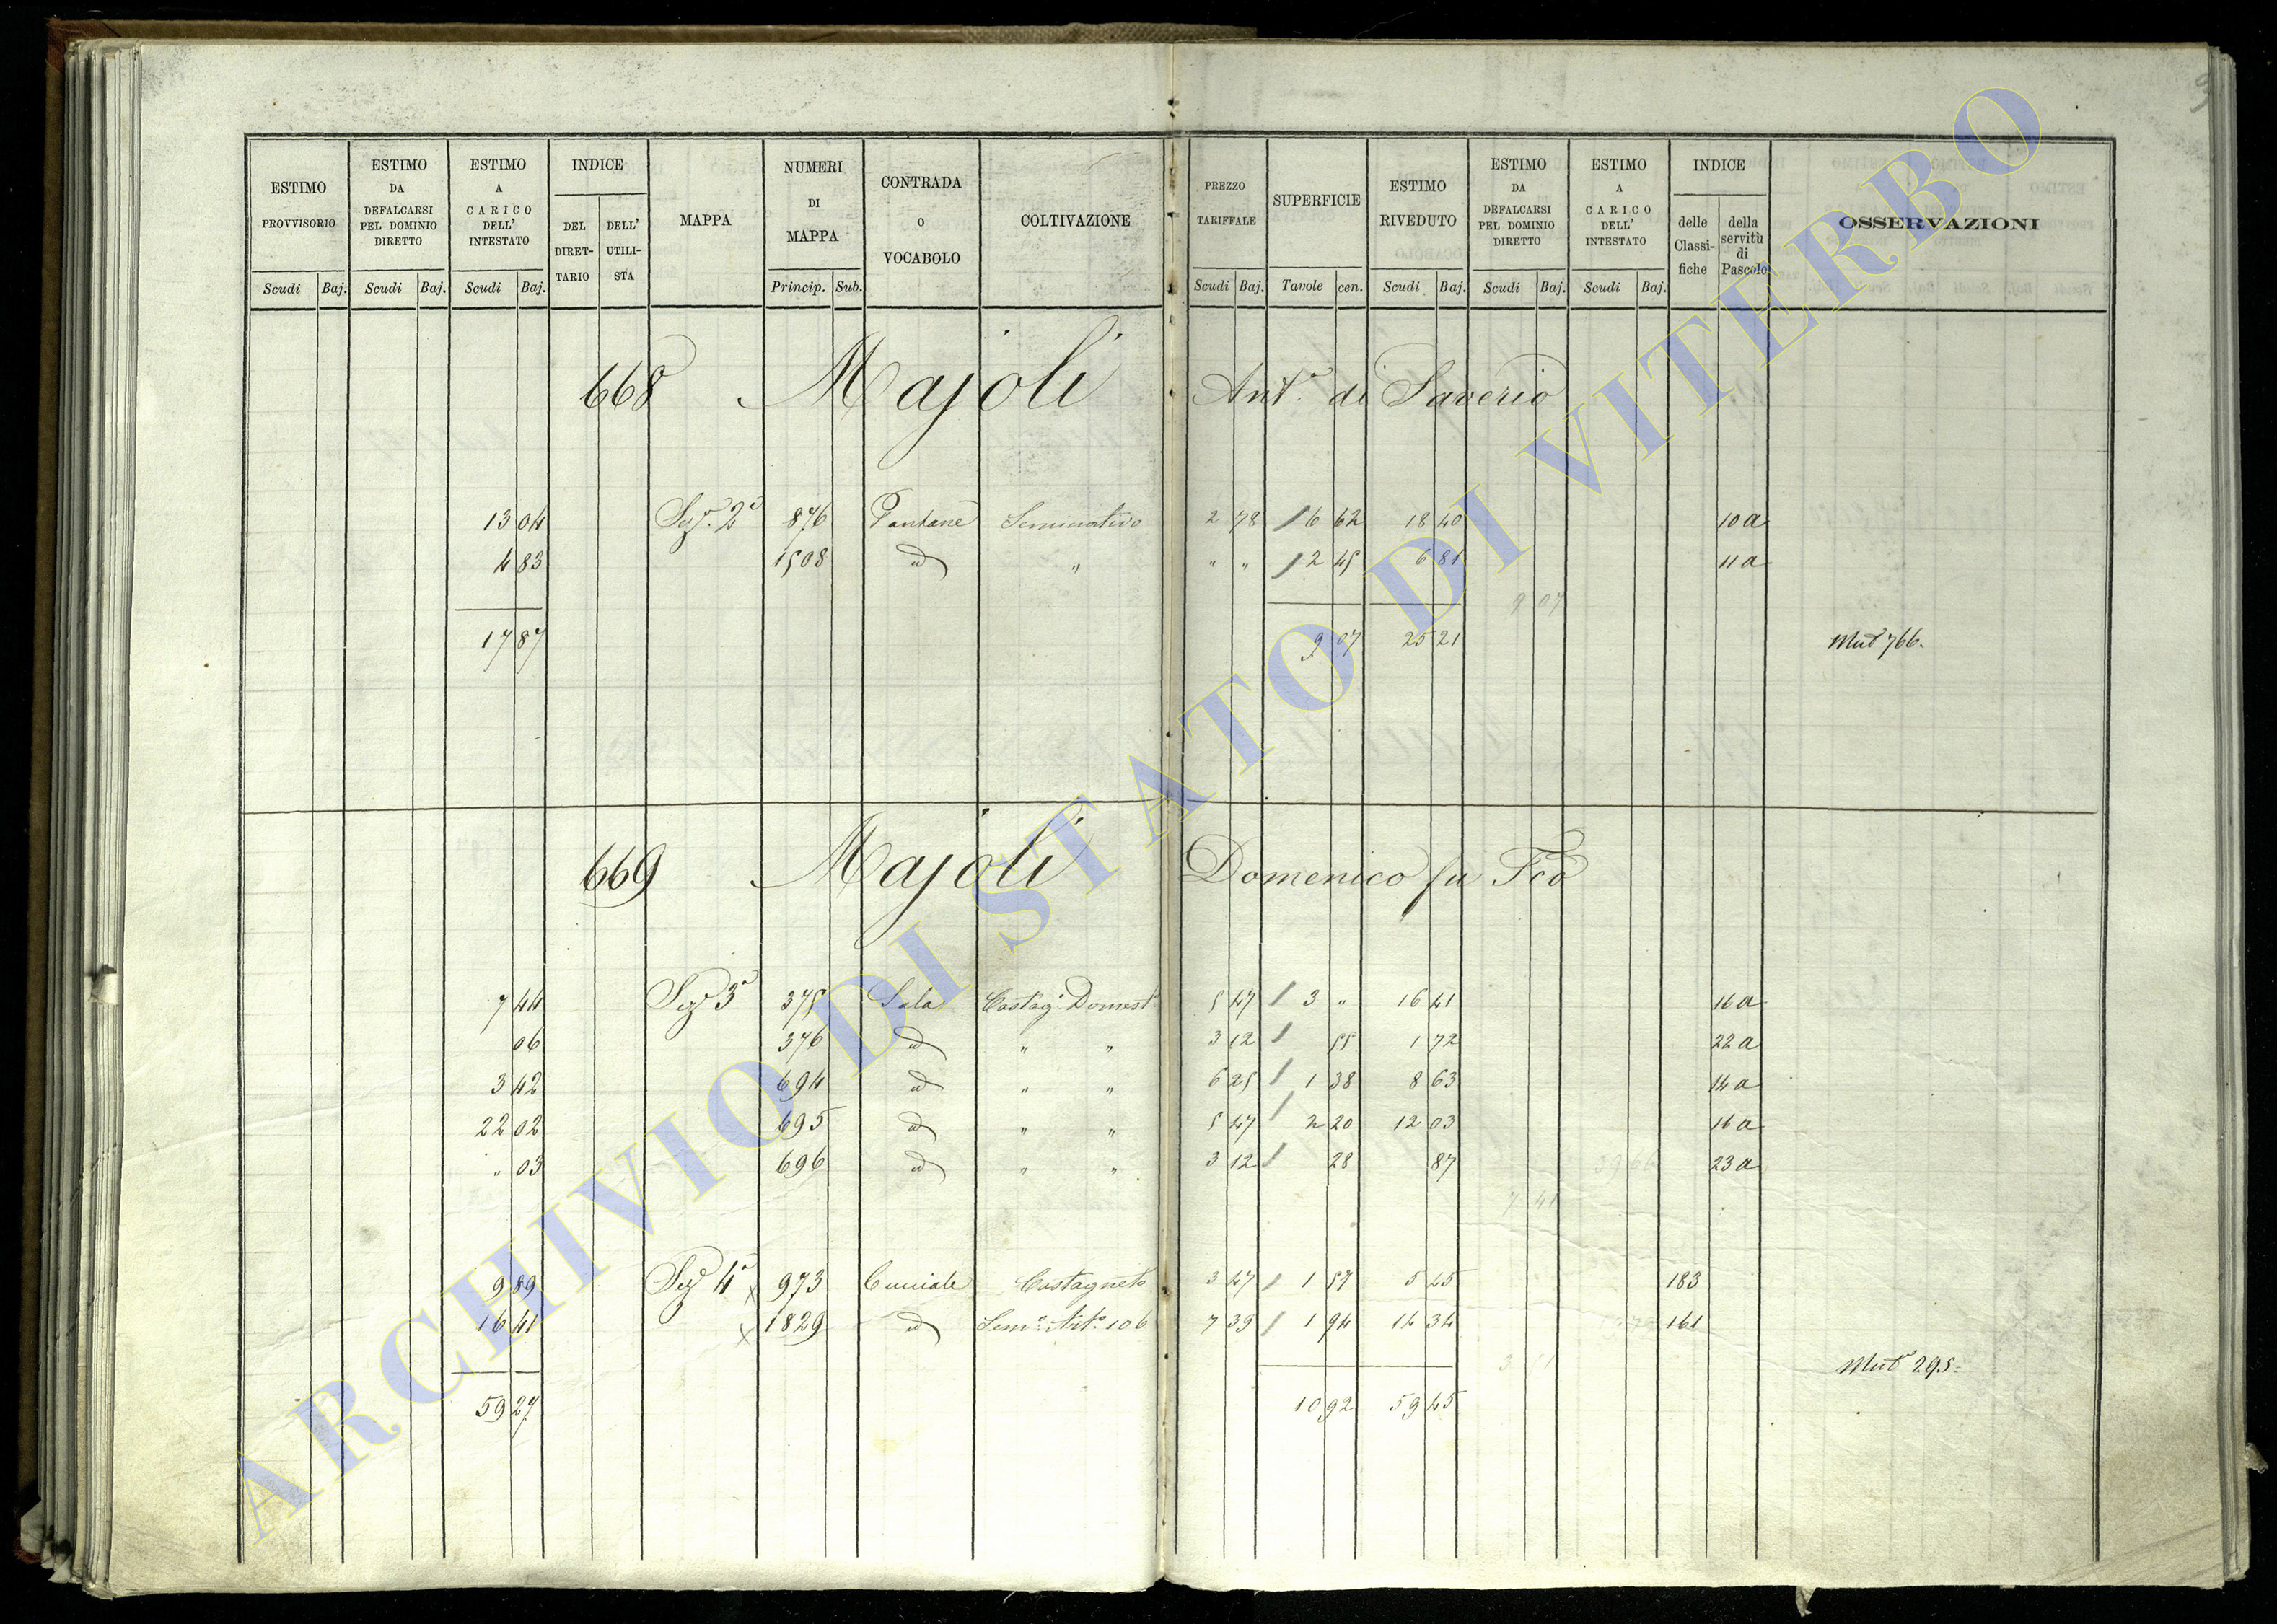 ESTIMO PROVVISORIO Scudi Baj.
ESTIMO DA DEFALCARSI PEL DOMINIO DIRETTO Scudi Baj.
ESTIMO A CARICO DELL' INTESTATO Scudi Baj.
INDICE DEL DIRET-TARIO DELL' UTILI-STA
MAPPA
NUMERI DI MAPPA Princip. Sub.
CONTRADA o VOCABOLO
COLTIVAZIONE
PREZZO TARIFFALE Scudi Baj.
SUPERFICIE Tavole cen.
ESTIMO RIVEDUTO Scudi Baj.
ESTIMO DA DEFALCARSI PEL DOMINIO DIRETTO Scudi Baj.
ESTIMO A CARICO DELL' INTESTATO Scudi Baj.
INDICE delle Classi-fiche della servitù di Pascolo
OSSERVAZIONI
668 Majoli Ant.o di Saverio
13 04 Sez. 2a 876 Pantane Seminativo 2 78 6 62 18 40 10 a
4 83 1508 id " " " 2 45 6 81 11 a
9 07
17 87 9 07 25 21 Mut 766.
669 Majoli Domenico fu Fco
7 44 Sez 3a 375 Sala Castag. Domest. 5 47 3 " 16 41 16 a
06 376 id " " 3 12 55 1 72 22 a
3 42 694 id " " 6 25 1 38 8 63 14 a
22 02 695 id " " 5 47 2 20 12 03 16 a
" 03 696 id " " 3 12 28 87 23 a
7 41
9 89 Sez 4a x 973 Cunicale Castagneto 3 47 1 57 5 45 183
16 41 x 1829 id Sem.o Art.o 106 7 39 1 94 14 34 161
Mut 295
59 27 10 92 59 45
ARCHIVIO DI STATO DI VITERBO